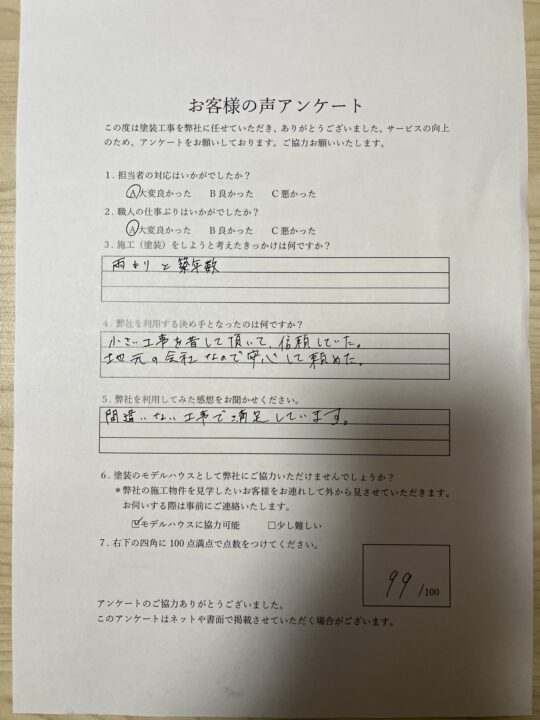 お客様の声アンケート
この度は塗装工事を弊社に任せていただき、ありがとうございました。サービスの向上
のため、アンケートをお願いしております。ご協力お願いいたします。
1. 担当者の対応はいかがでしたか？
A大変良かった B良かった C悪かった
2. 職人の仕事ぶりはいかがでしたか？
A大変良かった B良かった C悪かった
3. 施工（塗装）をしようと考えたきっかけは何ですか？
雨もりと築年数
4. 弊社を利用する決め手となったのは何ですか？
小さい工事を者して頂いて、信頼していた。
地元の会社なので安心して頼めた。
5. 弊社を利用してみた感想をお聞かせください。
間違いない工事で満足しています。
6. 塗装のモデルハウスとして弊社にご協力いただけませんでしょうか？
＊弊社の施工物件を見学したいお客様をお連れして外から見させていただきます。
お伺いする際は事前にご連絡いたします。
☑モデルハウスに協力可能 □少し難しい
7. 右下の四角に100点満点で点数をつけてください。
99/100
アンケートのご協力ありがとうございました。
このアンケートはネットや書面で掲載させていただく場合がございます。